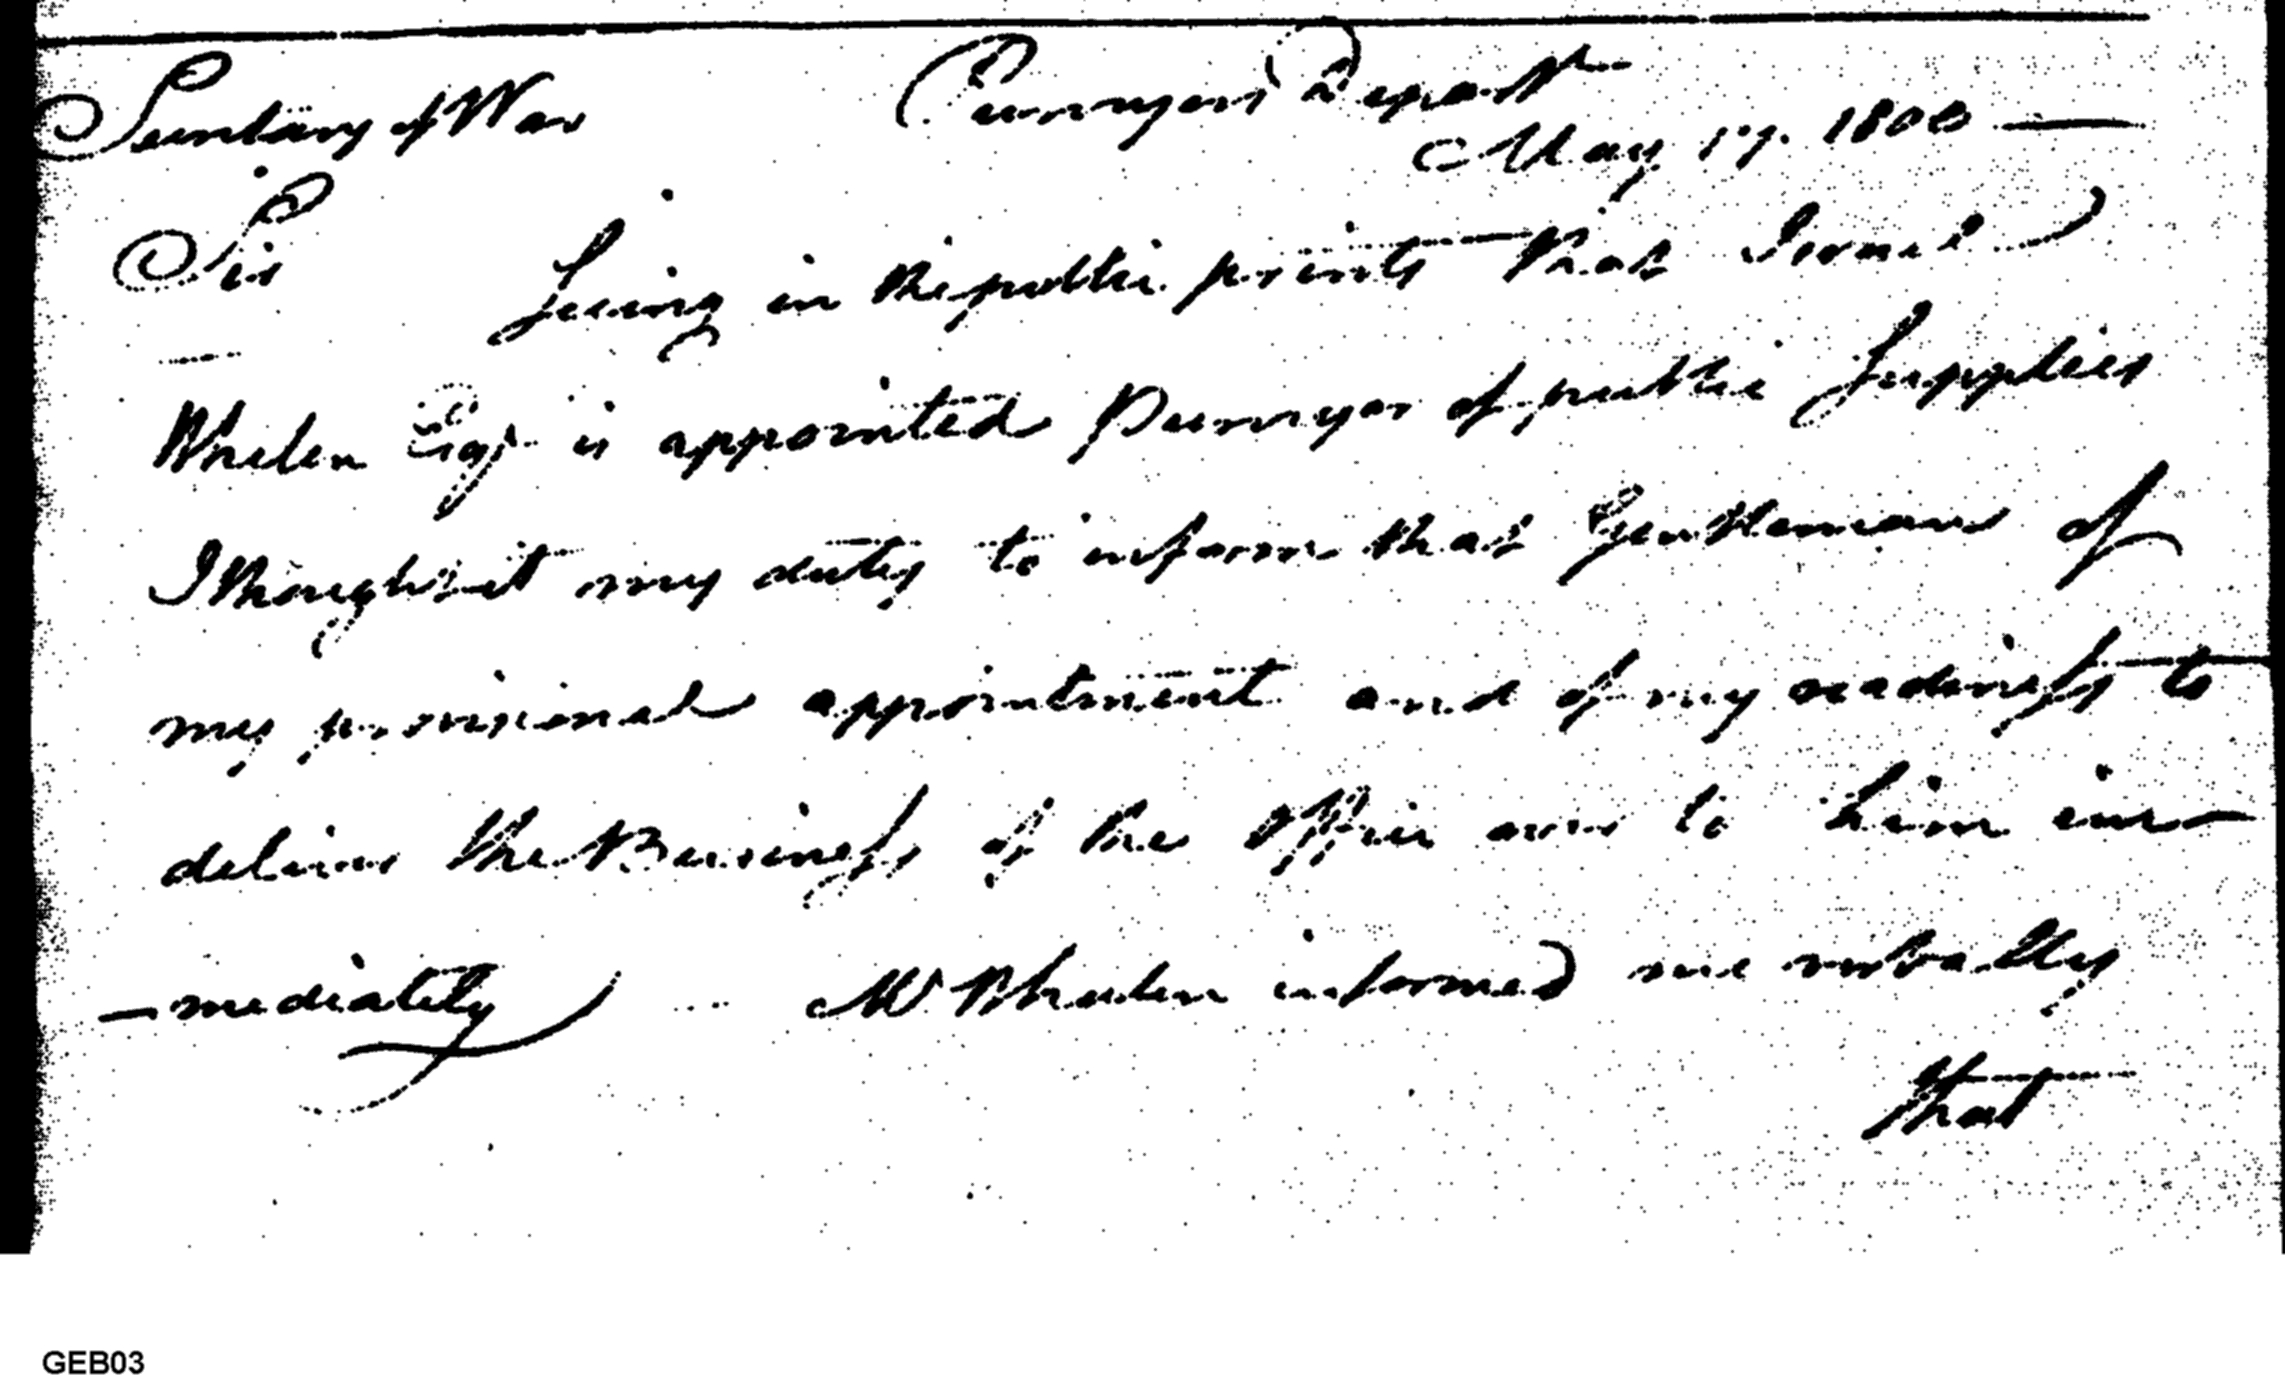 Secretary of War Purveyors Depart
May 17. 1800
Sir Seeing in the public prints that Israel
Whelen Esqr. is appointed Purveyor of public Supplies
I thought it my duty to inform that Gentleman of
my provisional appointment and of my readiness to
deliver the Business of the Office over to him im-
-mediately Mr Whelen informed me verbally
that
GEB03